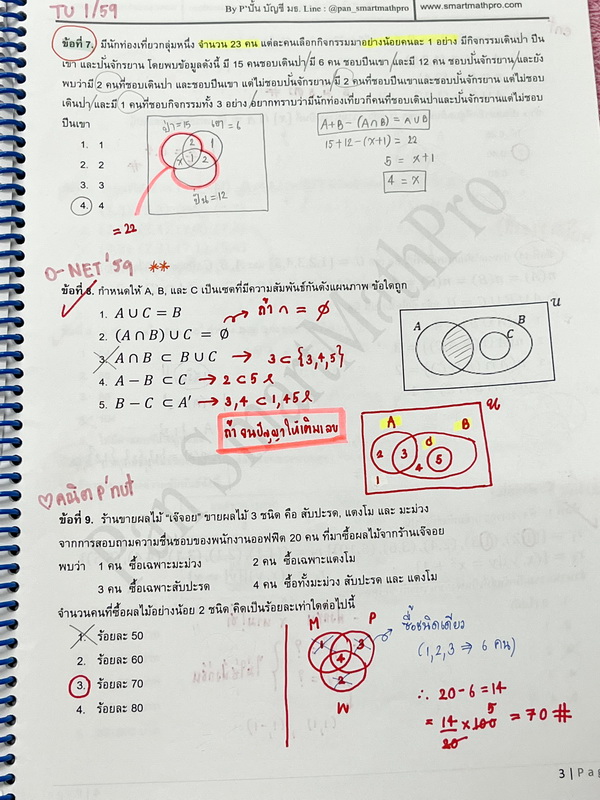 TU 1/59
By P'ปั้น บัญชี มธ. Line : @pan_smartmathpro
www.smartmathpro.com
ข้อที่ 7. มีนักท่องเที่ยวกลุ่มหนึ่ง จำนวน 23 คน แต่ละคนเลือกกิจกรรมมาอย่างน้อยคนละ 1 อย่าง มีกิจกรรมเดินป่า ปีน
เขา และปั่นจักรยาน โดยพบข้อมูลดังนี้ มี 15 คนชอบเดินป่า/มี 6 คน ชอบปีนเขา/และมี 12 คน ชอบปั่นจักรยาน/และยัง
พบว่ามี 2 คนที่ชอบเดินป่า และชอบปีนเขา แต่ไม่ชอบปั่นจักรยาน/มี 2 คนที่ชอบปีนเขาและชอบปั่นจักรยาน แต่ไม่ชอบ
เดินป่า/และมี 1 คนที่ชอบกิจกรรมทั้ง 3 อย่าง อยากทราบว่ามีนักท่องเที่ยวกี่คนที่ชอบเดินป่าและปั่นจักรยานแต่ไม่ชอบ
ปีนเขา
1. 1
2. 2
3. 3
4. 4
ป่า=15 เขา=6
2 1
x 1 2
ปั่น=12
= 22
A+B-(A∩B) = A∪B
15+12-(x+1) = 22
5 = x+1
4 = x
O-NET'59 **
ข้อที่ 8. กำหนดให้ A, B, และ C เป็นเซตที่มีความสัมพันธ์กันดังแผนภาพ ข้อใดถูก
1. A ∪ C = B
ถ้า ∩ = ∅
2. (A ∩ B) ∪ C = ∅
3. A ∩ B ⊂ B ∪ C → 3 ⊂ {3,4,5}
4. A − B ⊂ C → 2 ⊂ 5
5. B − C ⊂ A′ → 3,4 ⊂ 1,4,5
U
A B
C
ถ้าจนปัญญาให้เติมเลข
U
A B
2 3 4 5
1
♡คณิตP'nut
ข้อที่ 9. ร้านขายผลไม้ "เจ๊จอย" ขายผลไม้ 3 ชนิด คือ สับปะรด, แตงโม และ มะม่วง
จากการสอบถามความชื่นชอบของพนักงานออฟฟิต 20 คน ที่มาซื้อผลไม้จากร้านเจ๊จอย
พบว่า 1 คน ซื้อเฉพาะมะม่วง 2 คน ซื้อเฉพาะแตงโม
3 คน ซื้อเฉพาะสับปะรด 4 คน ซื้อทั้งมะม่วง สับปะรด และ แตงโม
จำนวนคนที่ซื้อผลไม้อย่างน้อย 2 ชนิด คิดเป็นร้อยละเท่าใดต่อไปนี้
1. ร้อยละ 50
2. ร้อยละ 60
3. ร้อยละ 70
4. ร้อยละ 80
M P
1 3
4
2
W
ซื้อชนิดเดียว
(1,2,3 ⇒ 6 คน)
∴ 20-6 = 14
= 14/20 × 100 5 = 70 #
3 | Pag
Pan SmartMathPro